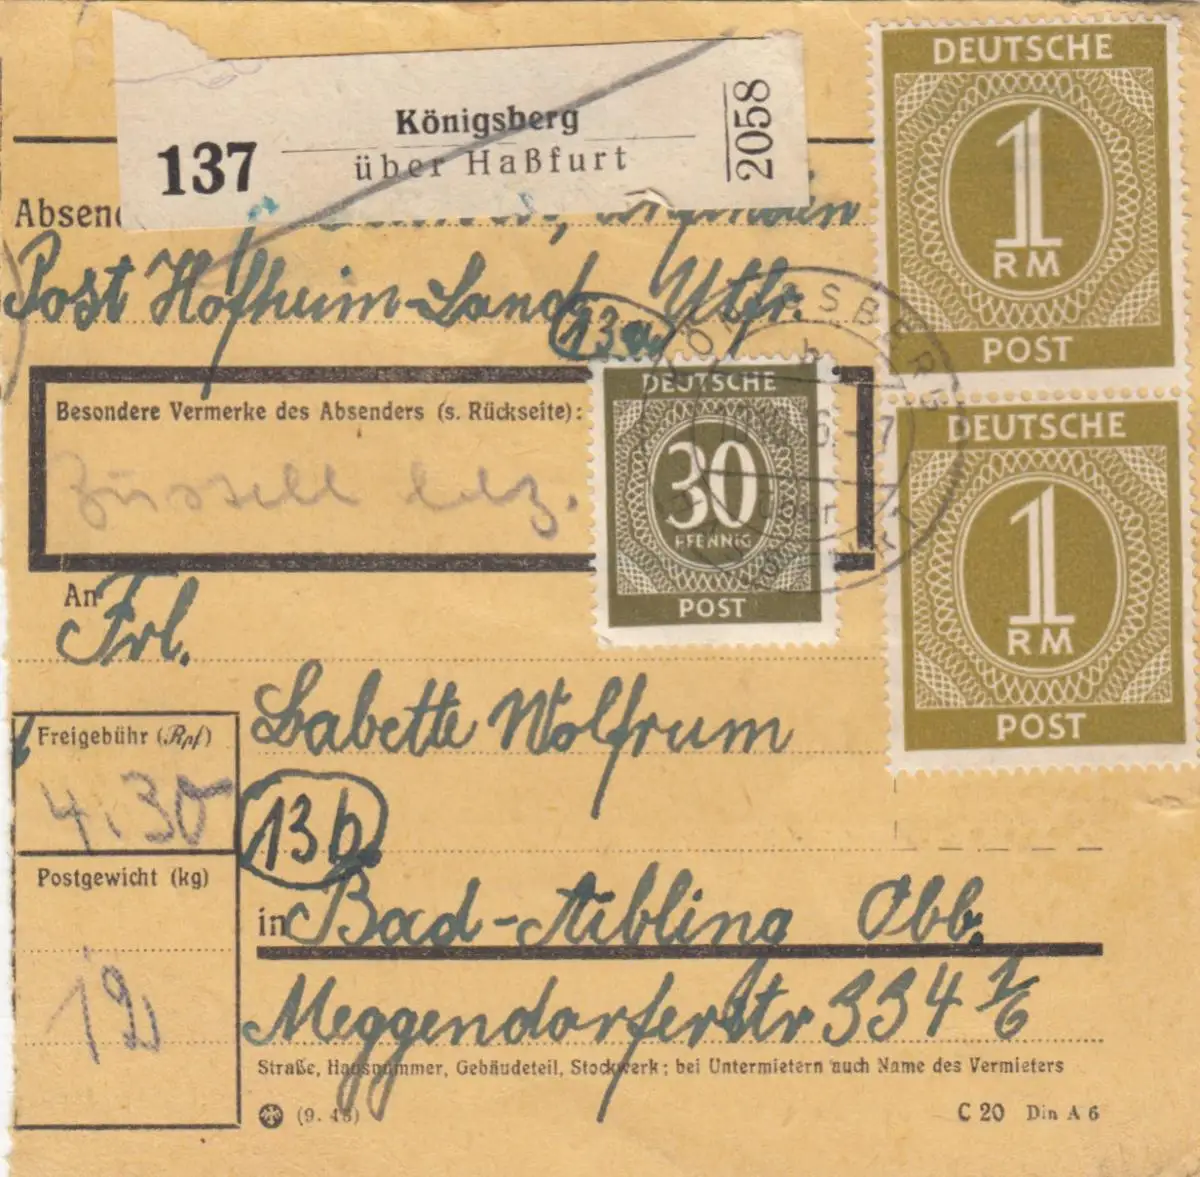 Königsberg
137
über Haßfurt
2058
DEUTSCHE
1
RM
POST
Post Hofheim-Land Utfr.
13a
Besondere Vermerke des Absenders (s. Rückseite):
Zustell bez.
DEUTSCHE
30
PFENNIG
POST
DEUTSCHE
1
RM
POST
An Frl.
Babette Wolfrum
Freigebühr (Rpf)
4.30
13b
Postgewicht (kg)
12
in Bad-Aibling Obb.
Meggendorferstr 334 1/6
Straße, Hausnummer, Gebäudeteil, Stockwerk; bei Untermietern auch Name des Vermieters
(9. 43)
C 20 Din A 6